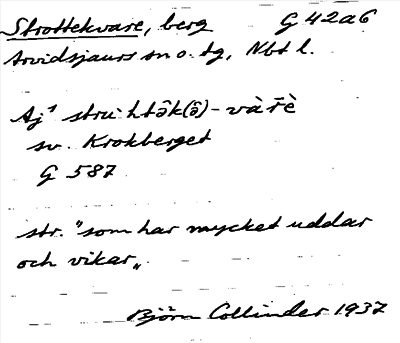 Strottekvare, berg G 42a6
Arvidsjaurs sn o. tg, Nbt l.
Aj¹ stru·htǝ̂k(ǝ̂)-vàr̄è
sv. Krokberget
G 587
str. "som har mycket uddar
och vikar„
Björn Collinder 1937